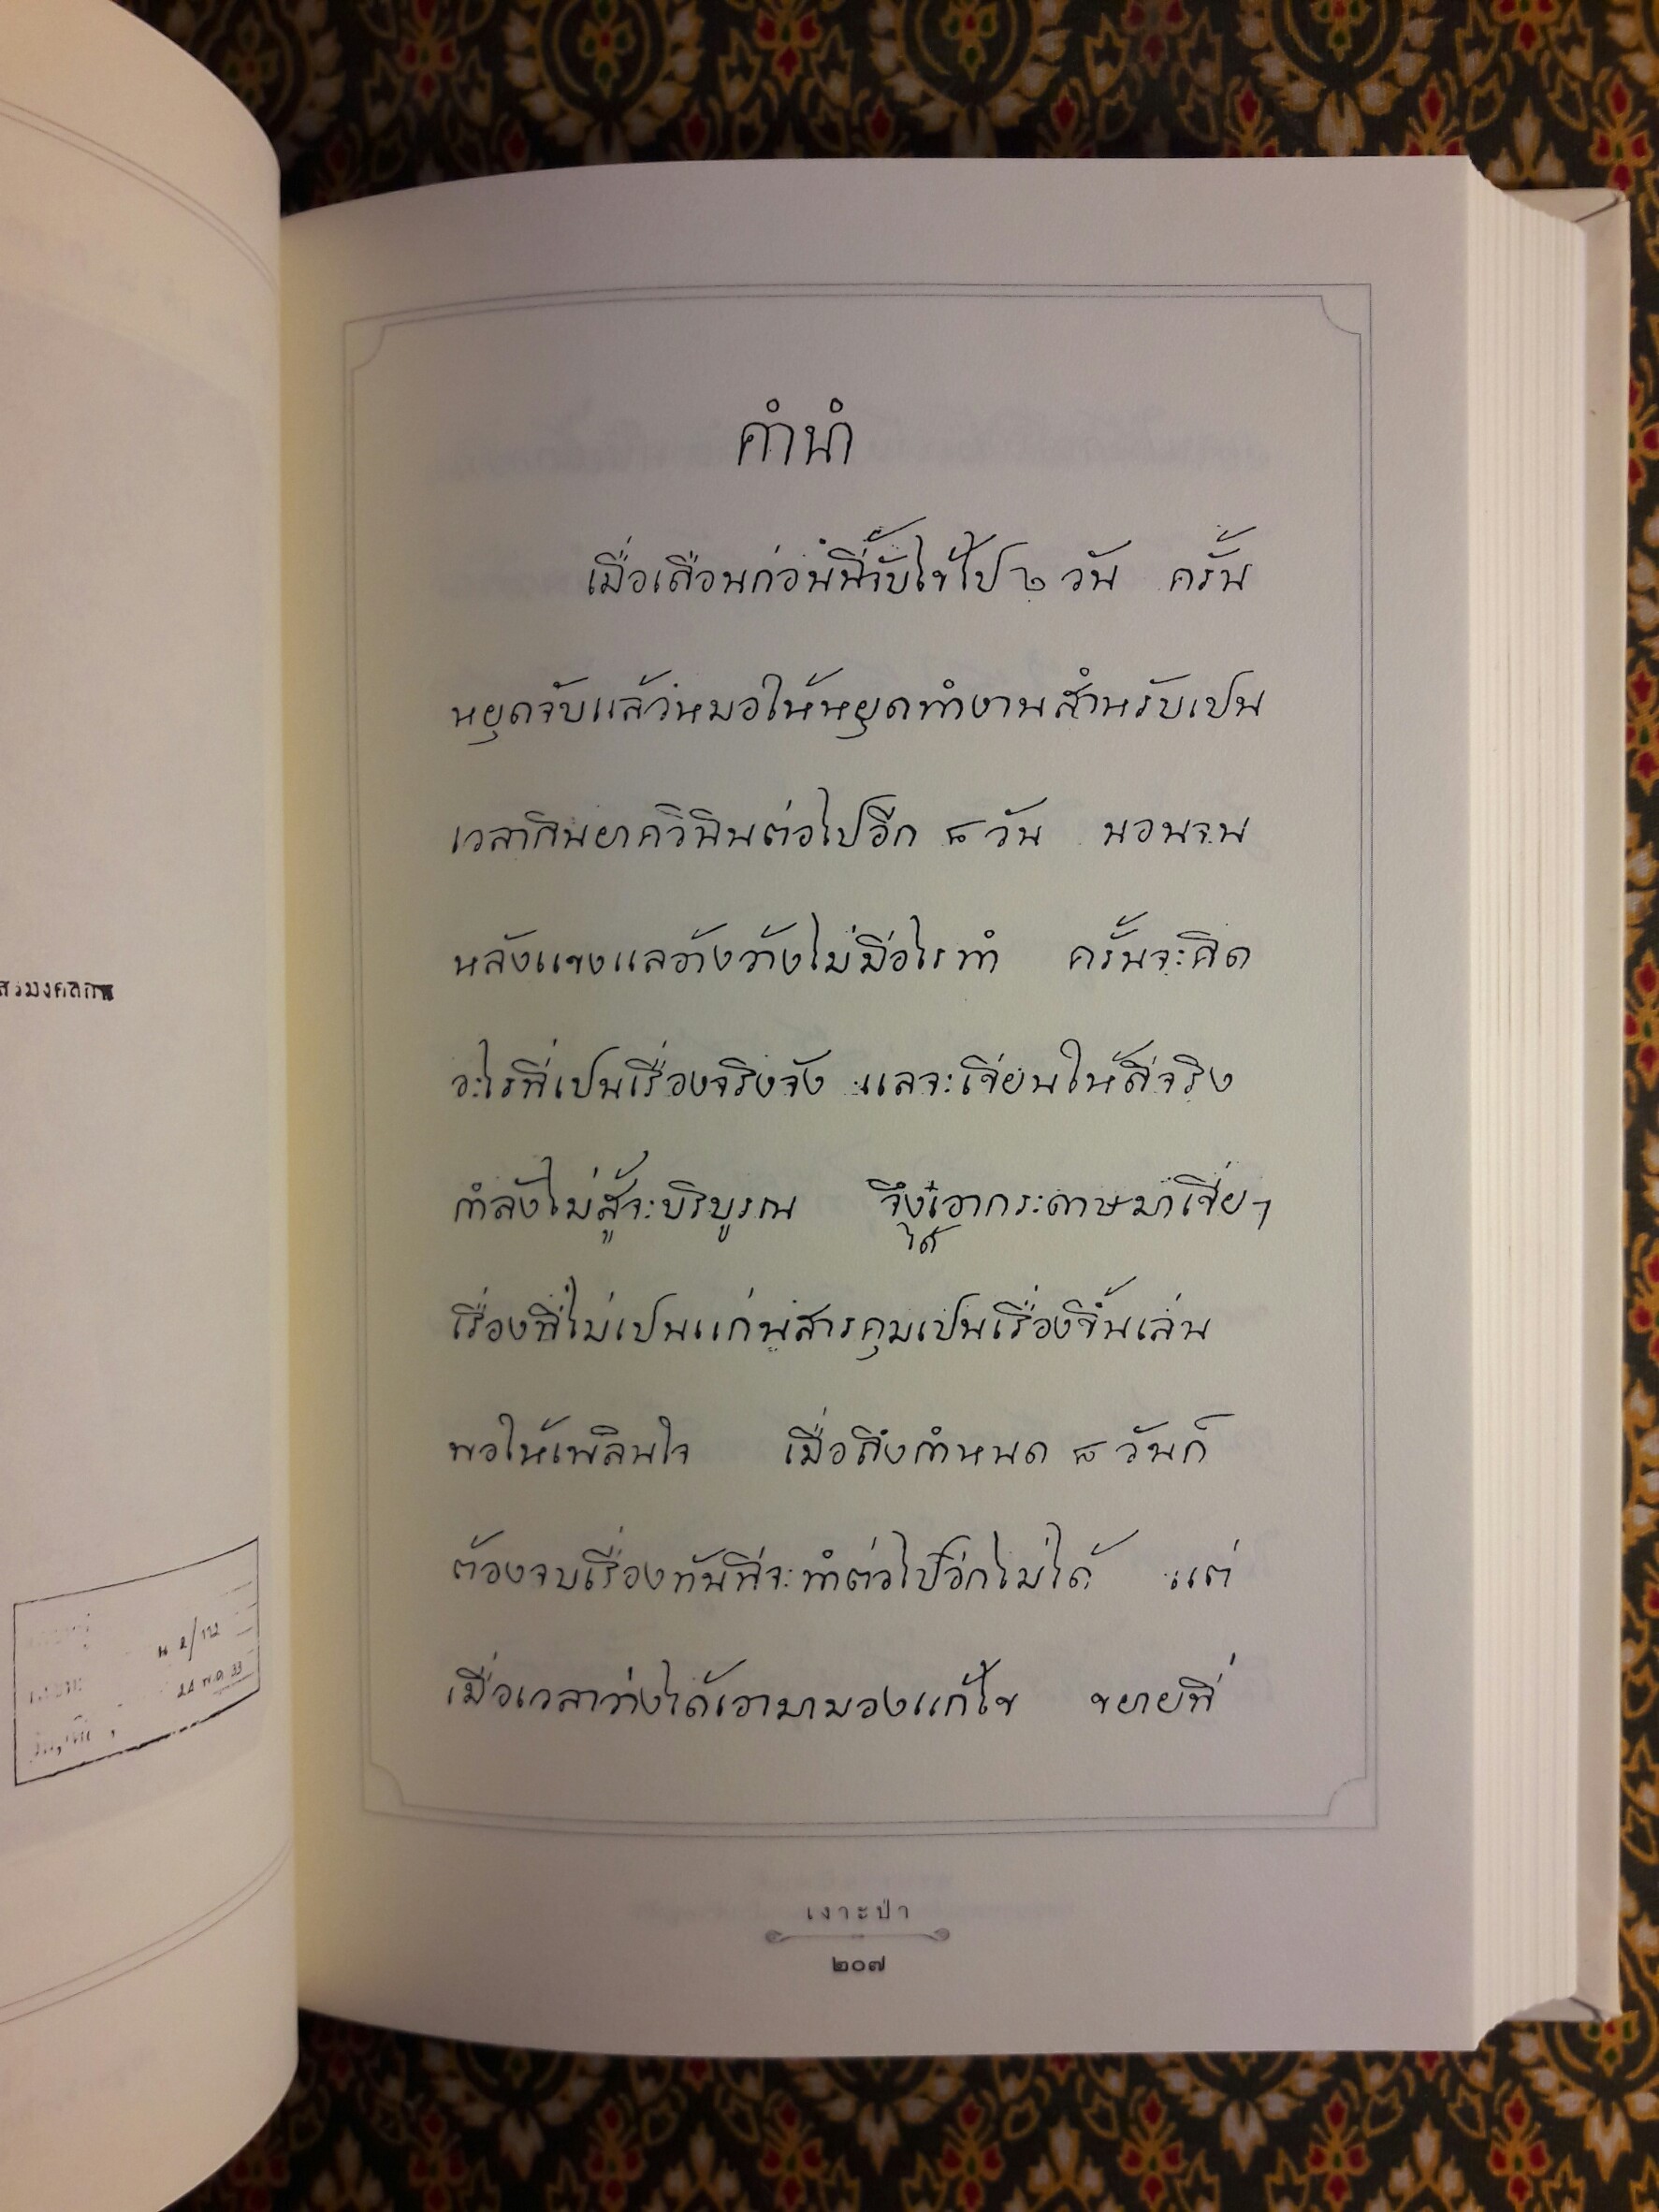 คำนำ
เมื่อเดือนก่อนนี้จับไข้ไป ๒ วัน ครั้น
หยุดจับแล้วหมอให้หยุดทำงานสำหรับเปน
เวลากินยาควินินต่อไปอีก ๘ วัน นอนจน
หลังแขงแลอ้างว้างไม่มีอไรทำ ครั้นจะคิด
อะไรที่เปนเรื่องจริงจัง แลจะเขียนให้ดีจริง
กำลังไม่สู้จะบริบูรณ จึงได้เอากระดาษมาเขียน
เรื่องที่ไม่เปนแก่นสารคุมเปนเรื่องขึ้นเล่น
พอให้เพลินใจ เมื่อถึงกำหนด ๘ วันก็
ต้องจบเรื่องทันทีจะทำต่อไปอีกไม่ได้ แต่
เมื่อเวลาว่างได้เอามามองแก้ไข ขยายที่
เงาะป่า
๒๐๗